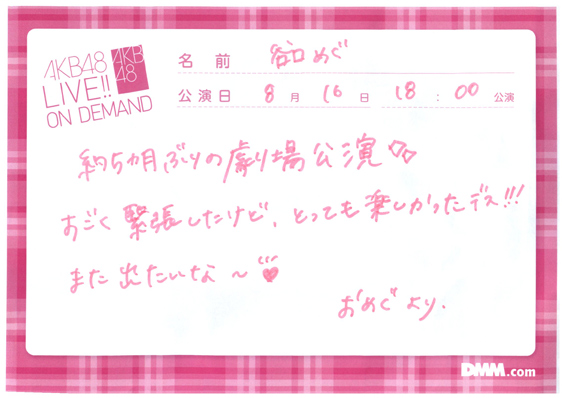 AKB48
LIVE!!
ON DEMAND
AKB
48
名前 谷口めぐ
公演日 8月 16日 18:00 公演
約5ヵ月ぶりの劇場公演
すごく緊張したけど、とっても楽しかったデス!!!
また出たいな〜
おめぐより.
DMM.com